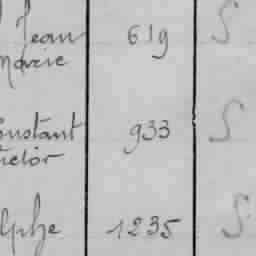 Jean 619 S
Marie
Constant 933 S
Victor
lphe 1235 S